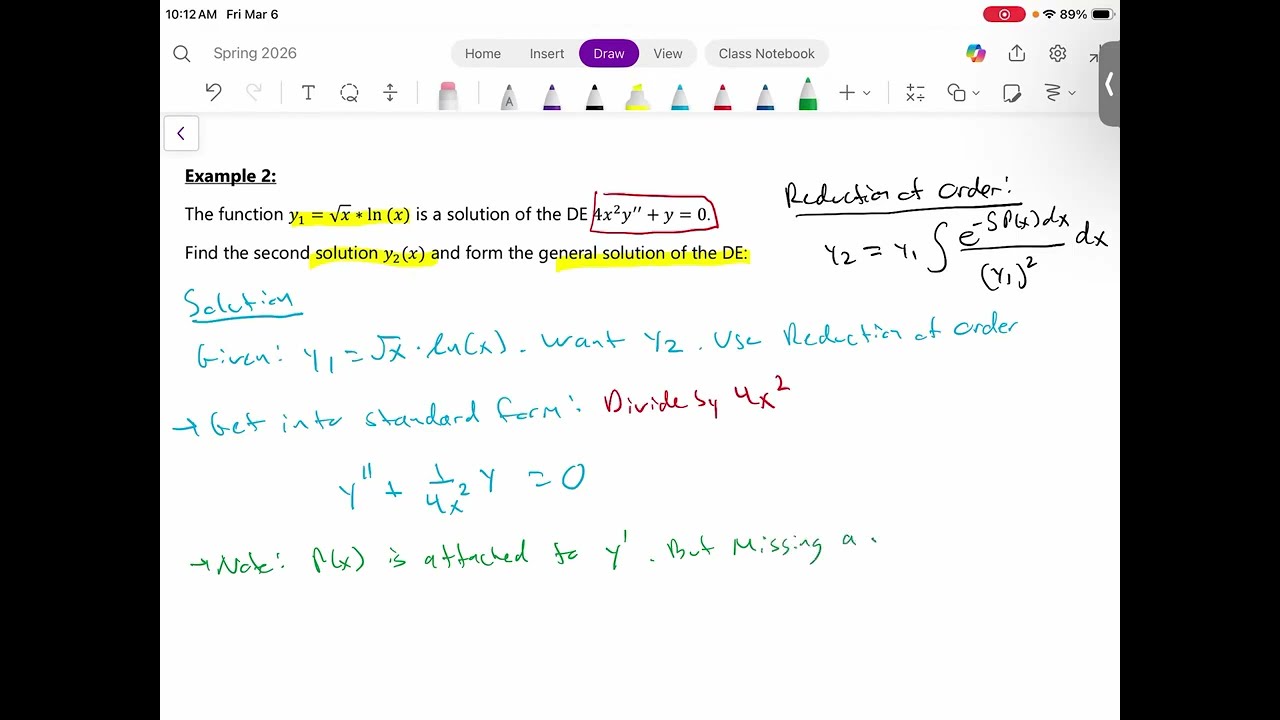 10:12 AM Fri Mar 6 89%
Spring 2026 Home Insert Draw View Class Notebook
Example 2:
The function y₁ = √x * ln (x) is a solution of the DE 4x²y′′ + y = 0.
Find the second solution y₂(x) and form the general solution of the DE:
Reduction of order:
y₂ = y₁ ∫ e^(-∫P(x)dx) / (y₁)² dx
Solution
Given: y₁ = √x · ln(x). Want y₂. Use Reduction of order
→ Get into standard form: Divide by 4x²
y'' + 1/4x² y = 0
→ Note: P(x) is attached to y'. But Missing a